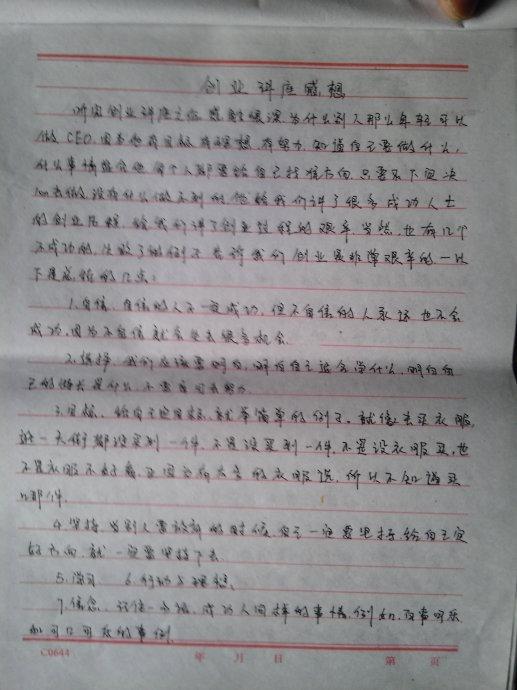 创业讲座感想
听完创业讲座之后,感触很深,为什么别人那么年轻可以
做CEO,因为他有目标,有理想,有努力,知道自己要做什么,
什么事情适合他,每个人都要给自己找准方向,只要下定决
心去做,没有什么做不到的,他给我们讲了很多成功人士
的创业历程,给我们讲了创业过程的艰辛,当然,也有几个
不成功的,失败了的例子告诉我们创业是非常艰辛的,一以
下是总结的几点:
1.自信,自信的人不一定成功,但不自信的人永远也不会
成功,因为不自信就会失去很多机会.
2.选择,我们应该要明白,明白自己适合学什么,明白自
己的特长是什么,不要盲目去努力.
3.目标,给自己定目标,就举简单的例子,就像去买衣服,
逛一天街都没买到一件,不是没买到一件,不是没衣服买,也
不是衣服不好看,而因为有太多的衣服选,所以不知道买
哪件.
4.坚持,当别人要放弃的时候,自己一定要坚持,给自己定
好方向,就一定要坚持下去.
5.学习 6.行动与理想,
7.信念,认准一条路,成功人同样的事情,例如,百事可乐
和可口可乐的事例.
C0644 年 月 日 第 页